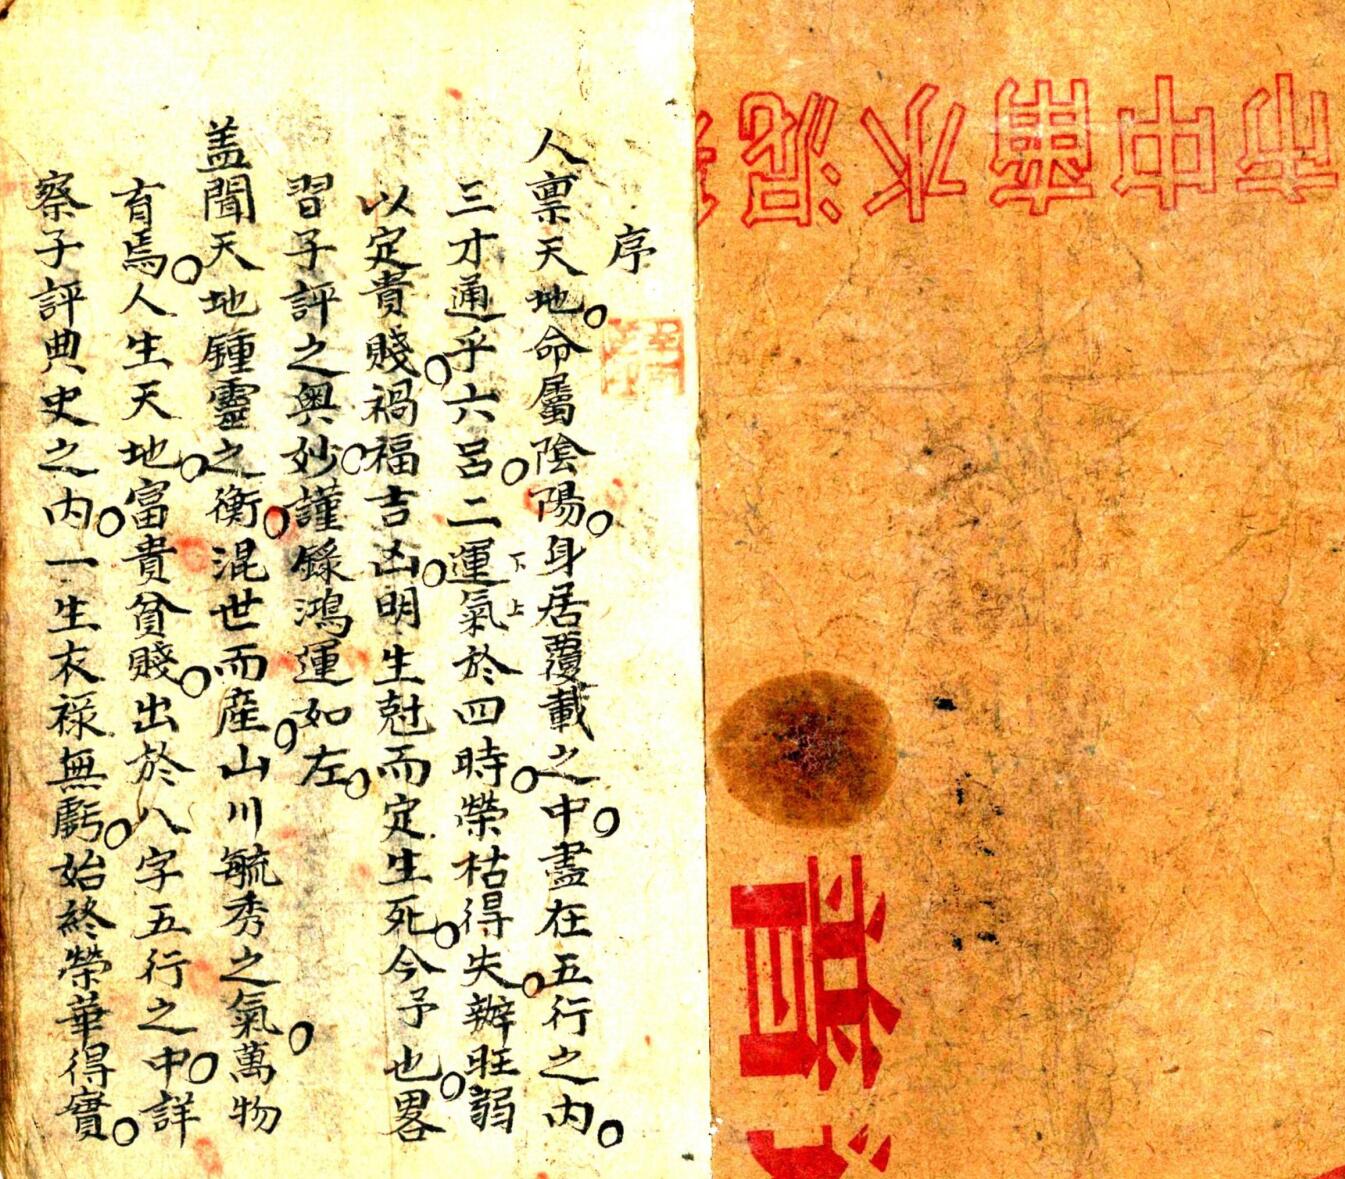 序
人禀天地。命屬陰陽。身居覆載之中。盡在五行之内。
下上
三才通乎六呂。二運氣於四時。榮枯得失。辦旺弱
以定貴賤。禍福吉凶。明生尅而定生死。今予也。畧
習子評之奥妙。謹錄鴻運如左。
盖聞天地鍾靈之衡。混世而産。山川毓秀之氣。萬物
育焉。人生天地。富貴貧賤。出於八字五行之中。詳
察子評典史之内。一生衣禄無虧。始終榮華得實。
市中水泥
普